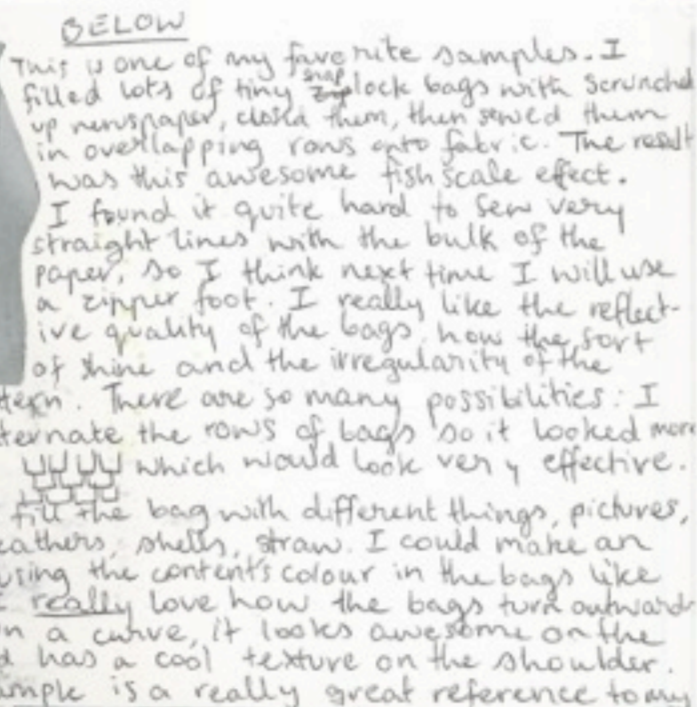 BELOW
This is one of my favorite samples. I
filled lots of tiny snap lock bags with scrunched
up newspaper, closed them, then sewed them
in overlapping rows onto fabric. The result
was this awesome fish scale effect.
I found it quite hard to sew very
straight lines with the bulk of the
paper, so I think next time I will use
a zipper foot. I really like the reflect-
ive quality of the bags, how the sort
of shine and the irregularity of the
tern. There are so many possibilities: I
ternate the rows of bags so it looked more
which would look very effective.
fill the bag with different things, pictures,
eathers, shells, straw. I could make an
using the content's colour in the bags like
really love how the bags turn outward
n a curve, it looks awesome on the
d has a cool texture on the shoulder.
ample is a really great reference to my